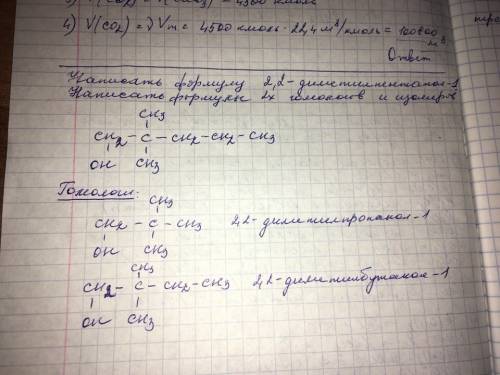 4) V(CO2) = ν Vm = 4500 кмоль · 22,4 м³/кмоль = 100800 м³
Ответ
Написать формулу 2,2-диметилпентанол-1
Написать формулы 2х гомологов и изомеров
CH3
CH2 - C - CH2 - CH2 - CH3
OH CH3
Гомологи:
CH3
CH2 - C - CH3 2,2-диметилпропанол-1
OH CH3
CH3
CH2 - C - CH2 - CH3 2,2-диметилбутанол-1
OH CH3